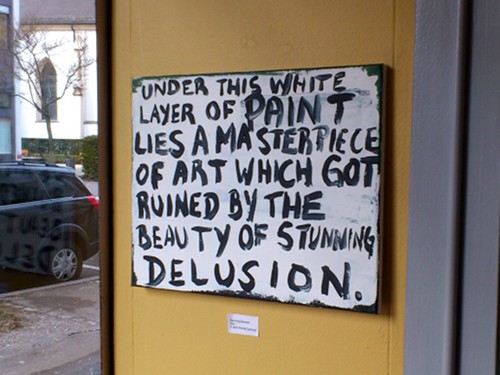 UNDER THIS WHITE
LAYER OF PAINT
LIES A MASTERPIECE
OF ART WHICH GOT
RUINED BY THE
BEAUTY OF STUNNING
DELUSION.